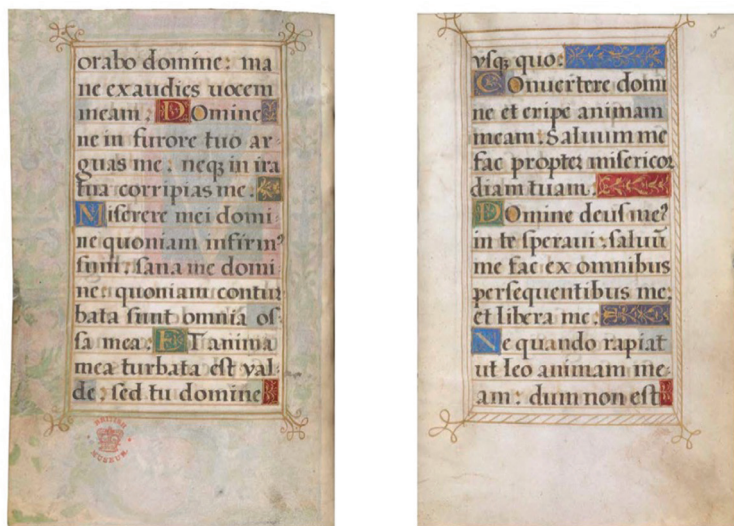 orabo domine: ma
ne exaudies uocem
meam. Domine
ne in furore tuo ar
guas me: neqꝫ in ira
tua corripias me.
Miserere mei domi
ne quoniam infirmꝰ
sum. sana me domi
ne quoniam contur
bata sunt omnia os
sa mea: ET anima
mea turbata est val
de: sed tu domine
BRITISH
MUSEUM
vsqꝫ quo:
Conuertere domi
ne et eripe animam
meam: Saluum me
fac propter misericor
diam tuam.
Domine deus meꝰ
in te speraui: saluū
me fac ex omnibus
persequentibus me:
et libera me:
Ne quando rapiat
ut leo animam me
am: dum non est